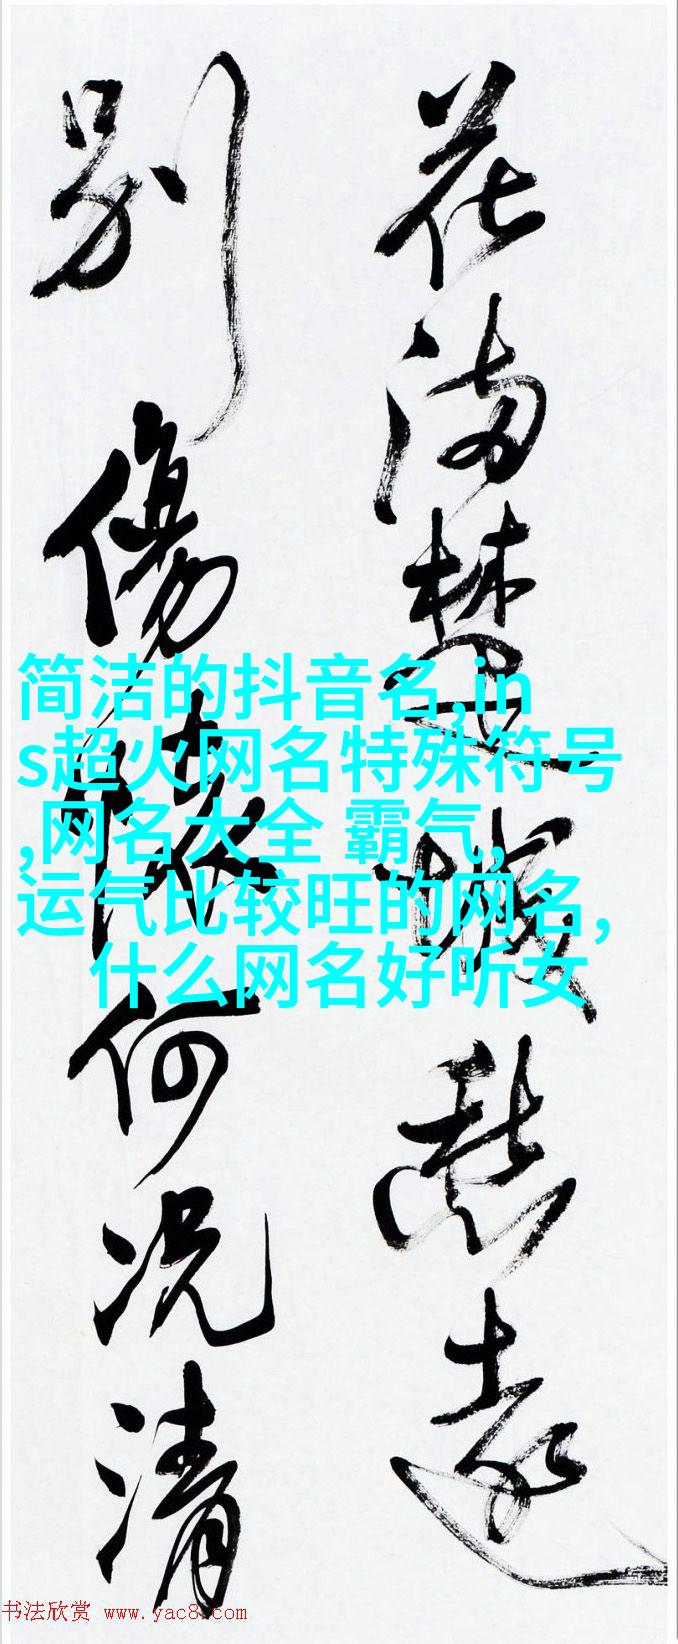 花满楚城愁远
别傷懷何况清
简洁的抖音名,in
s超火网名特殊符号
,网名大全 霸气,
运气比较旺的网名,
什么网名好听女
书法欣赏 www.yac8.com